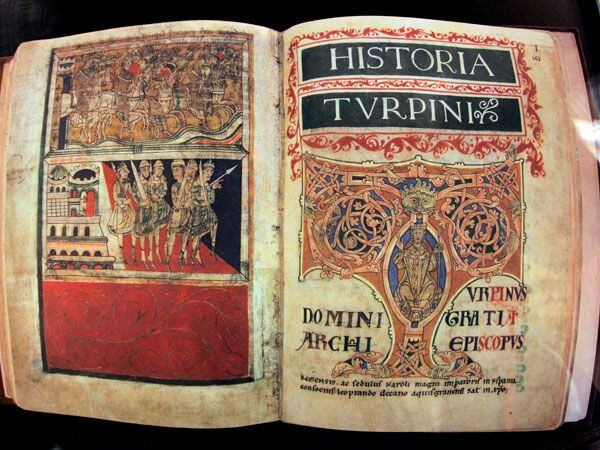 HISTORIA
TVRPINI
I
163
TVRPINVS
DOMINI GRATIA
ARCHI EPISCOPVS
REMENSIS. ac sedulus Karoli magni imperatoris in yspania
consocius. leoprando decano aquisgranensi sal in xpo;